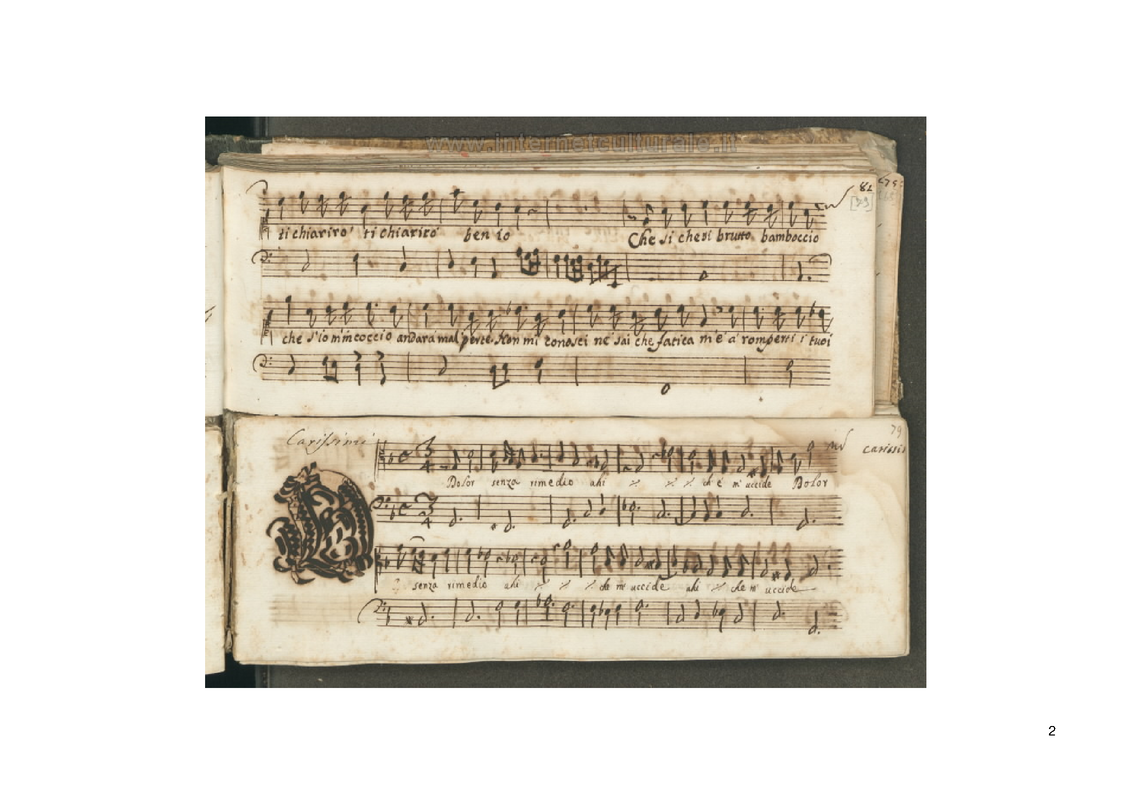 www.internetculturale.it
82
[99]
ti chiarirò ti chiarirò ben io Che si che si brutto bamboccio
che s'io m'incoccio andarà mal per te. Non mi conosci nè sai che fatica m'è a romperti i tuoi
79
Carissimi
Dolor senza rimedio ahi che m'uccide Dolor
senza rimedio ahi che m'uccide ahi che m'uccide
2